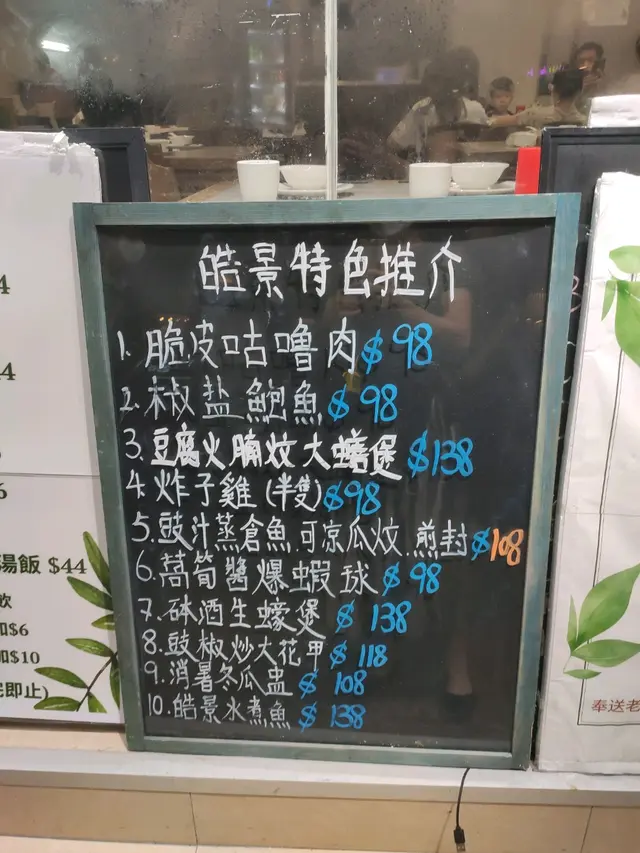 皓景特色推介
1. 脆皮咕嚕肉 $98
2. 椒盐鮑魚 $98
3. 豆腐火腩炆大蠔煲 $138
4. 炸子雞 (半隻) $98
5. 豉汁蒸倉魚.可凉瓜炆.煎封 $108
6. 萵筍醬爆蝦球 $98
7. 砵酒生蠔煲 $138
8. 豉椒炒大花甲 $118
9. 消暑冬瓜盅 $108
10. 皓景水煮魚 $138
湯飯 $44
飲
加$6
加$10
完即止)
奉送老